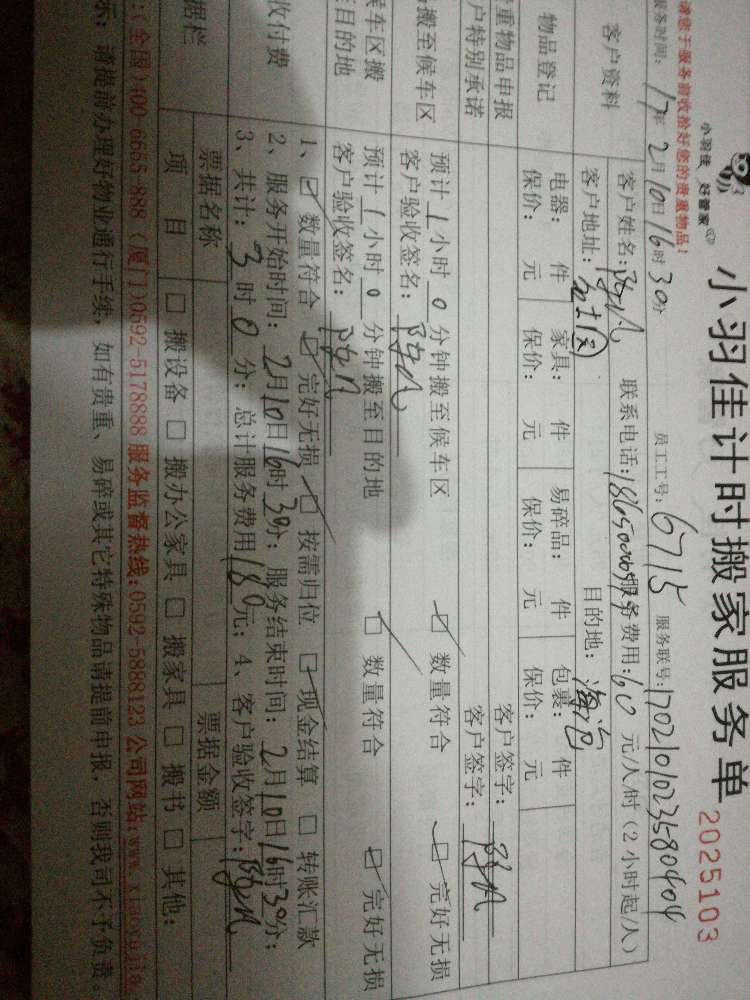 小羽佳 好管家
小羽佳计时搬家服务单
2025103
请您于服务前收拾好您的贵重物品!
服务时间: 17年2月10日16时30分 员工工号: 6715 服务联号:
客户资料
客户姓名: 联系电话: 服务费用: 60 元/人/时(2小时起/人)
客户地址: 目的地: 海沧
物品登记
电器: 件 家具: 件 易碎品: 件 包裹: 件
保价: 元 保价: 元 保价: 元 保价: 元
重物品申报 客户签字:
户特别承诺 客户签字:
搬至候车区
预计 1 小时 0 分钟搬至候车区 数量符合 完好无损
客户验收签名:
候车区搬
至目的地
预计 1 小时 0 分钟搬至目的地 数量符合 完好无损
客户验收签名:
收付费
1、 数量符合 完好无损 按需归位 现金结算 转账汇款
2、服务开始时间: 2月10日16时30分; 服务结束时间: 2月10日16时30分;
3、共计: 3 时 0 分; 总计服务费用 180 元; 4、客户验收签字:
据栏
票据名称 票据金额
项目 搬设备 搬办公家具 搬家具 搬书 其他:
:(全国)400-6655-888 (厦门)0592-5178888 服务监督热线:0592-5888123 公司网站:www.xiaoyujia.
示: 请提前办理好物业通行手续, 如有贵重、易碎或其它特殊物品请提前申报, 否则我司不予负责。